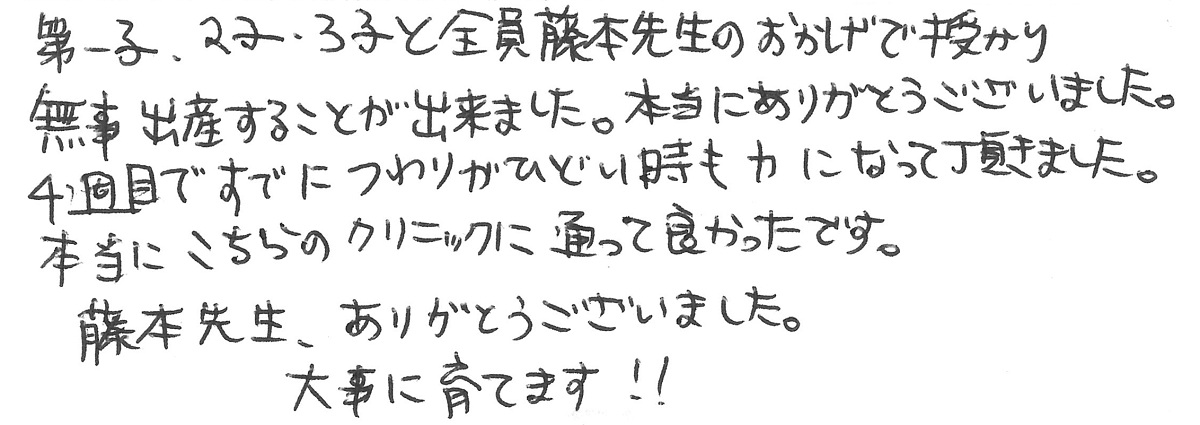 第一子、2子・3子と全員藤本先生のおかげで授かり
無事出産することが出来ました。本当にありがとうございました。
4週目ですでにつわりがひどい時も力になって頂きました。
本当にこちらのクリニックに通って良かったです。
藤本先生、ありがとうございました。
大事に育てます!!